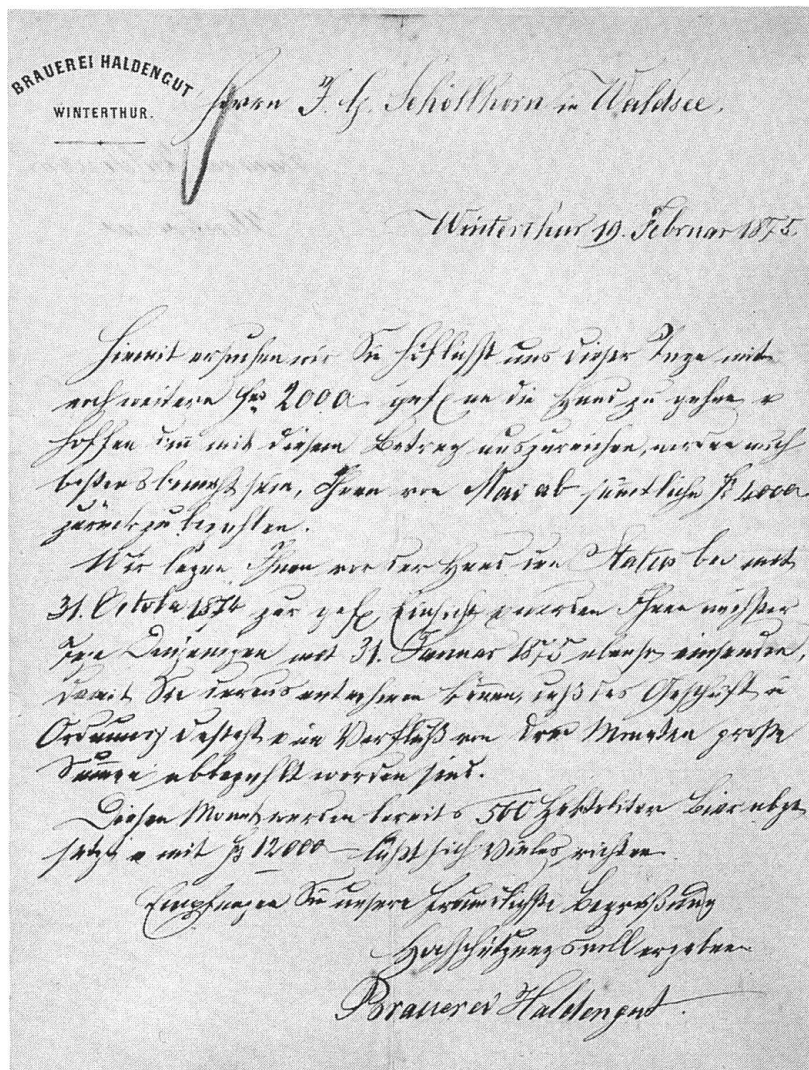 BRAUEREI HALDENGUT
WINTERTHUR.
Herrn J. G. Schöllhorn in Waldsee.
Winterthur 19. Februar 1875.
Hiemit ersuchen wir Sie höflichst uns dieser Tage mit
noch weitern frs 2000 gefl an die Hand zu gehen &
hoffen dann mit diesem Betrag auszureichen, werden auch
bestens bemüht sein, Ihnen von Mai ab sämtliche fs 4000
zurückzubezahlen.
Wir legen Ihnen vor der Hand den Status bei mit
31. October 1874 zur gefl Einsicht & werden Ihnen nächster
Tage Denjenigen mit 31. Januar 1875 ebenso einsenden,
damit Sie daraus entnehmen können, daß das Geschäft in
Ordnung besteht & im Verfluß von drei Monaten große
Summen abbezahlt worden sind.
Diesen Monat werden bereits 500 Hektoliter Bier abge
setzt & mit fs 12000 läßt sich Vieles richten.
Empfangen Sie unsere freundlichste Begrüßung
Hochschätzungsvoll ergeben
Brauerei Haldengut.